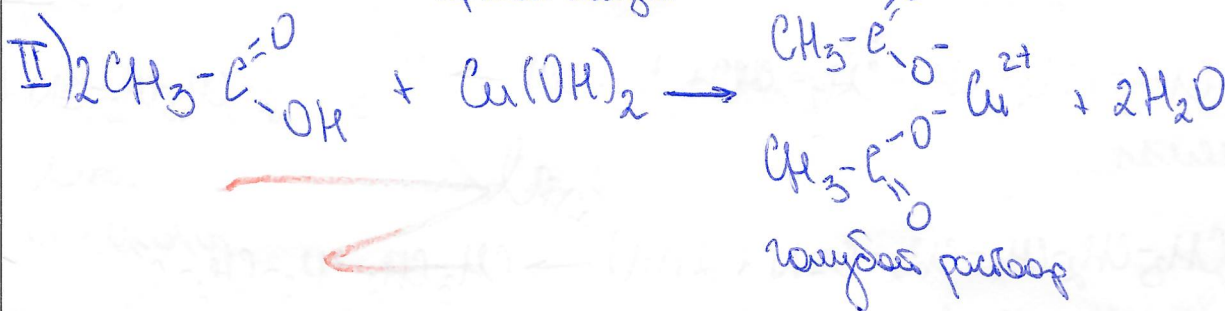 II) 2CH₃-C(=O)-OH + Cu(OH)₂ → (CH₃-C(=O)-O⁻)₂ Cu²⁺ + 2H₂O
голубой раствор